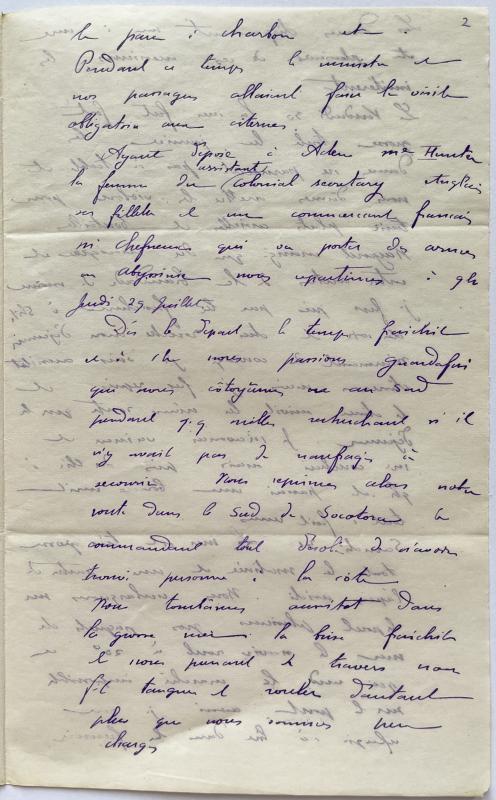 2
le parc à charbon etc.
Pendant ce temps le ministre et
nos passagers allaient faire la visite
obligatoire aux citernes.
Ayant déposé à Aden Mme Hunter
la femme du assistant Colonial secretary Anglais
ses fillettes et un commerçant français
Mr Chefneux qui va porter des armes
en Abyssinie nous repartîmes à 9h
Jeudi 29 Juillet.
Dès le départ le temps fraichit
et à 1h nous passions Guardafui
que nous côtoyâmes au Sud
pendant qq milles recherchant s'il
n'y avait pas de naufragés à
secourir. Nous reprîmes alors notre
route dans le Sud de Socotora le
commandant tout désolé de n'avoir
trouvé personne à la côte.
Nous tombâmes aussitôt dans
la grosse mer : la brise fraichit
et nous prenant de travers nous
fit tanguer et rouler d'autant
plus que nous sommes peu
chargés